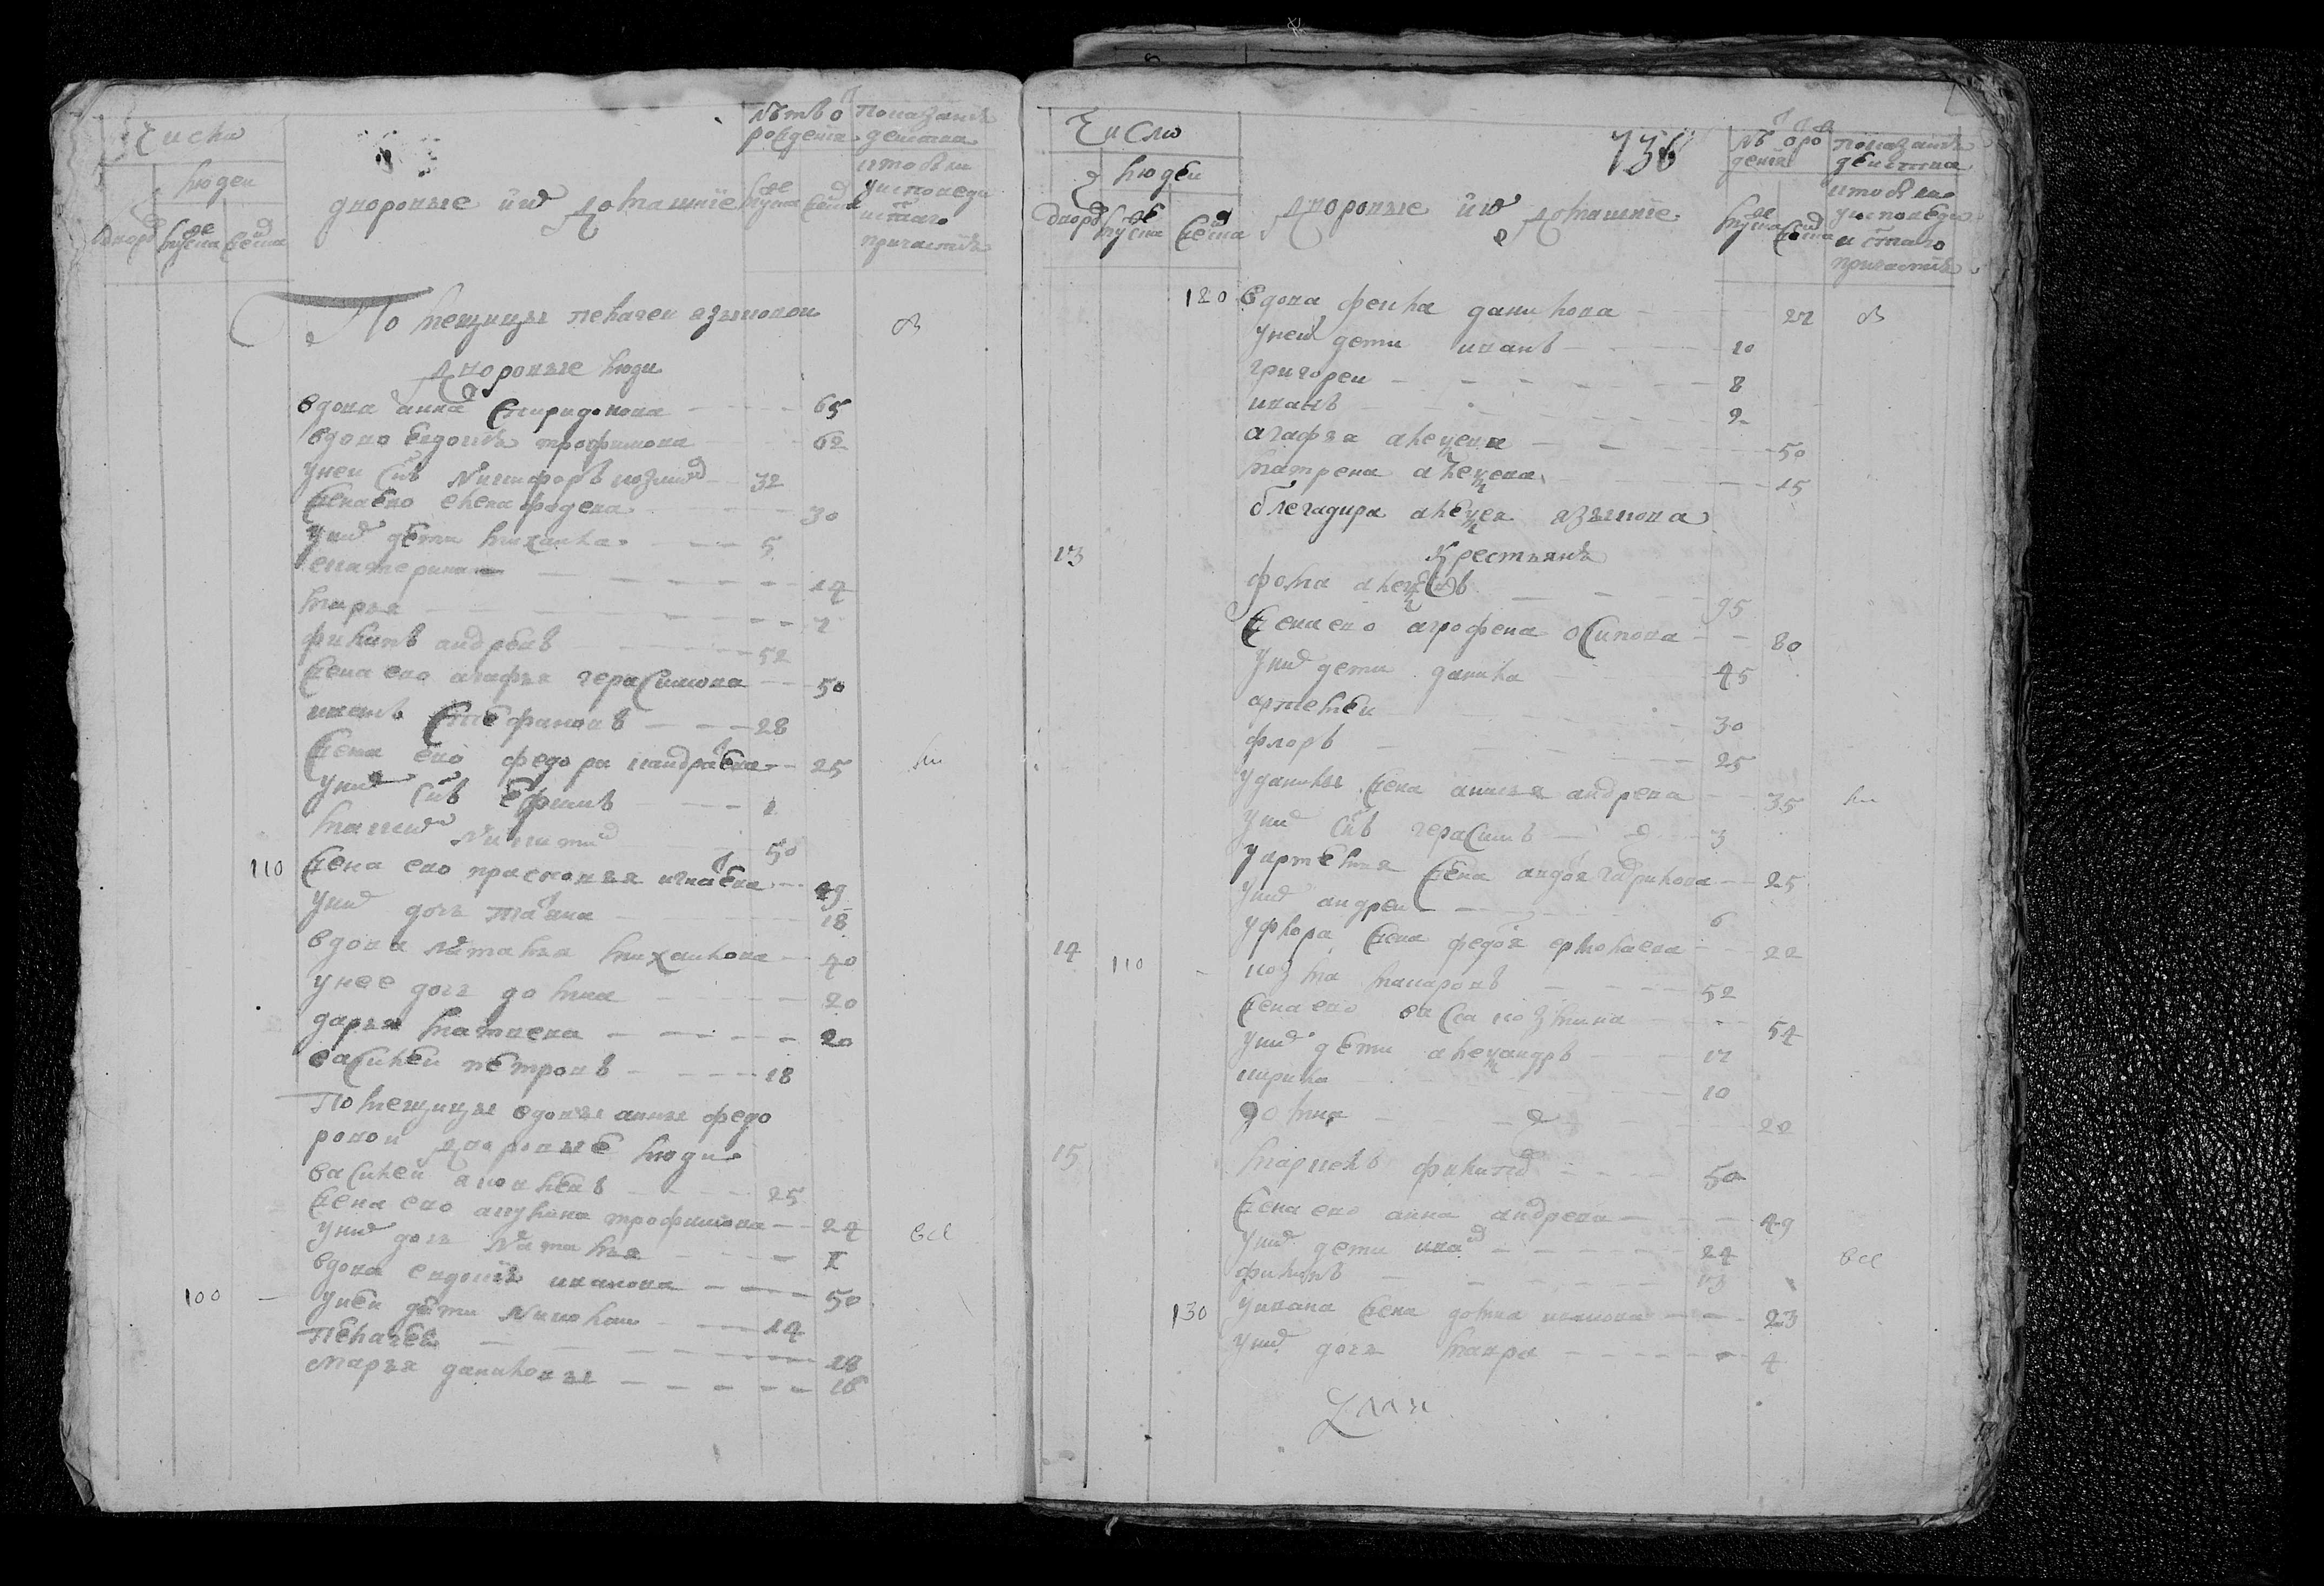 Числа
людеи
дворовъ
мужеска
женска
дворовые и ихъ домашние
лѣтъ о
рождения
мужеска
женска
показание
действа
кто былъ
у исповеди
и стаго
причастия
Помещицы пелагеи языковои
дворовые люди
вдова анна спиридонова 65
вдова евдокия трофимова 62
у неи снъ никифоръ козминъ 32
жена ево елена фадеева 30
у нихъ дети михаила 5
екатерина 14
марья 7
филипъ андреевъ 52
жена ево агафья герасимова 50
иванъ стефановъ 28
жена ево федора кандратева 25
у нихъ снъ ефимъ 1
максимъ никитинъ 50
110 жена ево прасковья игнатева 49
у нихъ дочь татяна 18
вдова наталья михаилова 40
у нее дочь домна 20
дарья матвеева 20
василеи петровъ 18
Помещицы вдовы анны федо
ровои дворовые люди
василеи яковлевъ 25
жена ево акулина трофимова 24
у нихъ дочь наталья 1
все
вдова евдокия иванова 50
100 у неи дети николаи 14
пелагея 18
марья данилова 16
Число
людеи
дворовъ
мужеска
женска
дворовые и ихъ домашние
736
лѣтъ о рож
дения
мужеска
женска
показание
действа
кто былъ
у исповеди
и стаго
причастия
120 вдова фекла данилова 27
у неи дети иванъ 10
григореи 8
иванъ 2
агафья алексеева 50
матрена алексеева 15
брегадира алексея языкова
13 крестьянъ
фома алексеевъ 95
жена ево агрофена осипова 80
у нихъ дети данила 45
артемеи 30
флоръ 25
у данилы жена анисья андреева 35
у нихъ снъ герасимъ 3
у артемья жена авдотя гаврилова 25
у нихъ андреи 6
у флора жена федотя ермолаева 22
14 110 козма макаровъ 52
жена ево васса козмина 54
у нихъ дети александръ 17
кирила 10
домна 20
15 маркелъ филиповъ 50
жена ево анна андреева 49
у нихъ дети иванъ 24
все
филипъ 13
130 у ивана жена домна иванова 23
у нихъ дочь мавра 4